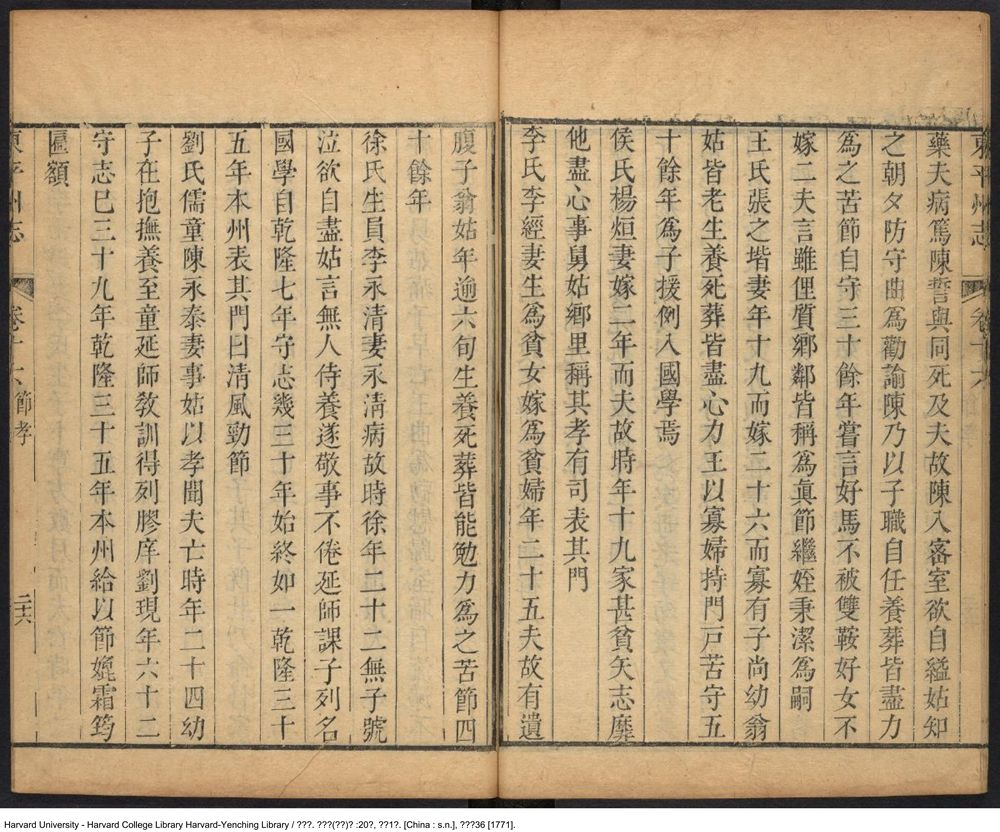 東平州志 卷十六
藥夫病篤陳誓與同死及夫故陳入密室欲自縊姑知
之朝夕防守曲為勸諭陳乃以子職自任養葬皆盡力
為之苦節自守三十餘年嘗言好馬不被雙鞍好女不
嫁二夫言雖俚質鄉鄰皆稱為眞節繼姪秉潔為嗣
王氏張之堦妻年十九而嫁二十六而寡有子尚幼翁
姑皆老生養死葬皆盡心力王以寡婦持門戸苦守五
十餘年為子援例入國學焉
侯氏楊烜妻嫁二年而夫故時年十九家甚貧矢志靡
他盡心事舅姑鄉里稱其孝有司表其門
李氏李經妻生為貧女嫁為貧婦年二十五夫故有遺
腹子翁姑年逾六旬生養死葬皆能勉力為之苦節四
十餘年
徐氏生員李永清妻永清病故時徐年二十二無子號
泣欲自盡姑言無人侍養遂敬事不倦延師課子列名
國學自乾隆七年守志幾三十年始終如一乾隆三十
五年本州表其門曰清風勁節
劉氏儒童陳永泰妻事姑以孝聞夫亡時年二十四幼
子在抱撫養至童延師敎訓得列膠庠劉現年六十二
守志巳三十九年乾隆三十五年本州給以節媲霜筠
匾額
東平州志 卷十六 節孝 二六
Harvard University - Harvard College Library Harvard-Yenching Library / ???. ???(??)? :20?, ??1?. [China : s.n.], ???36 [1771].